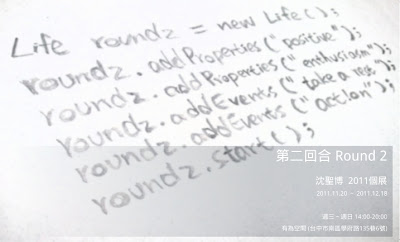 Life round2 = new Life();
round2.addProperties("positive");
round2.addProperties("enthusiasm");
round2.addEvents("take a rest");
round2.addEvents("action");
round2.start();
第二回合 Round 2
沈聖博 2011個展
2011.11.20 — 2011.12.18
週三~週日 14:00-20:00
有為空間 (台中市南區學府路135巷6號)